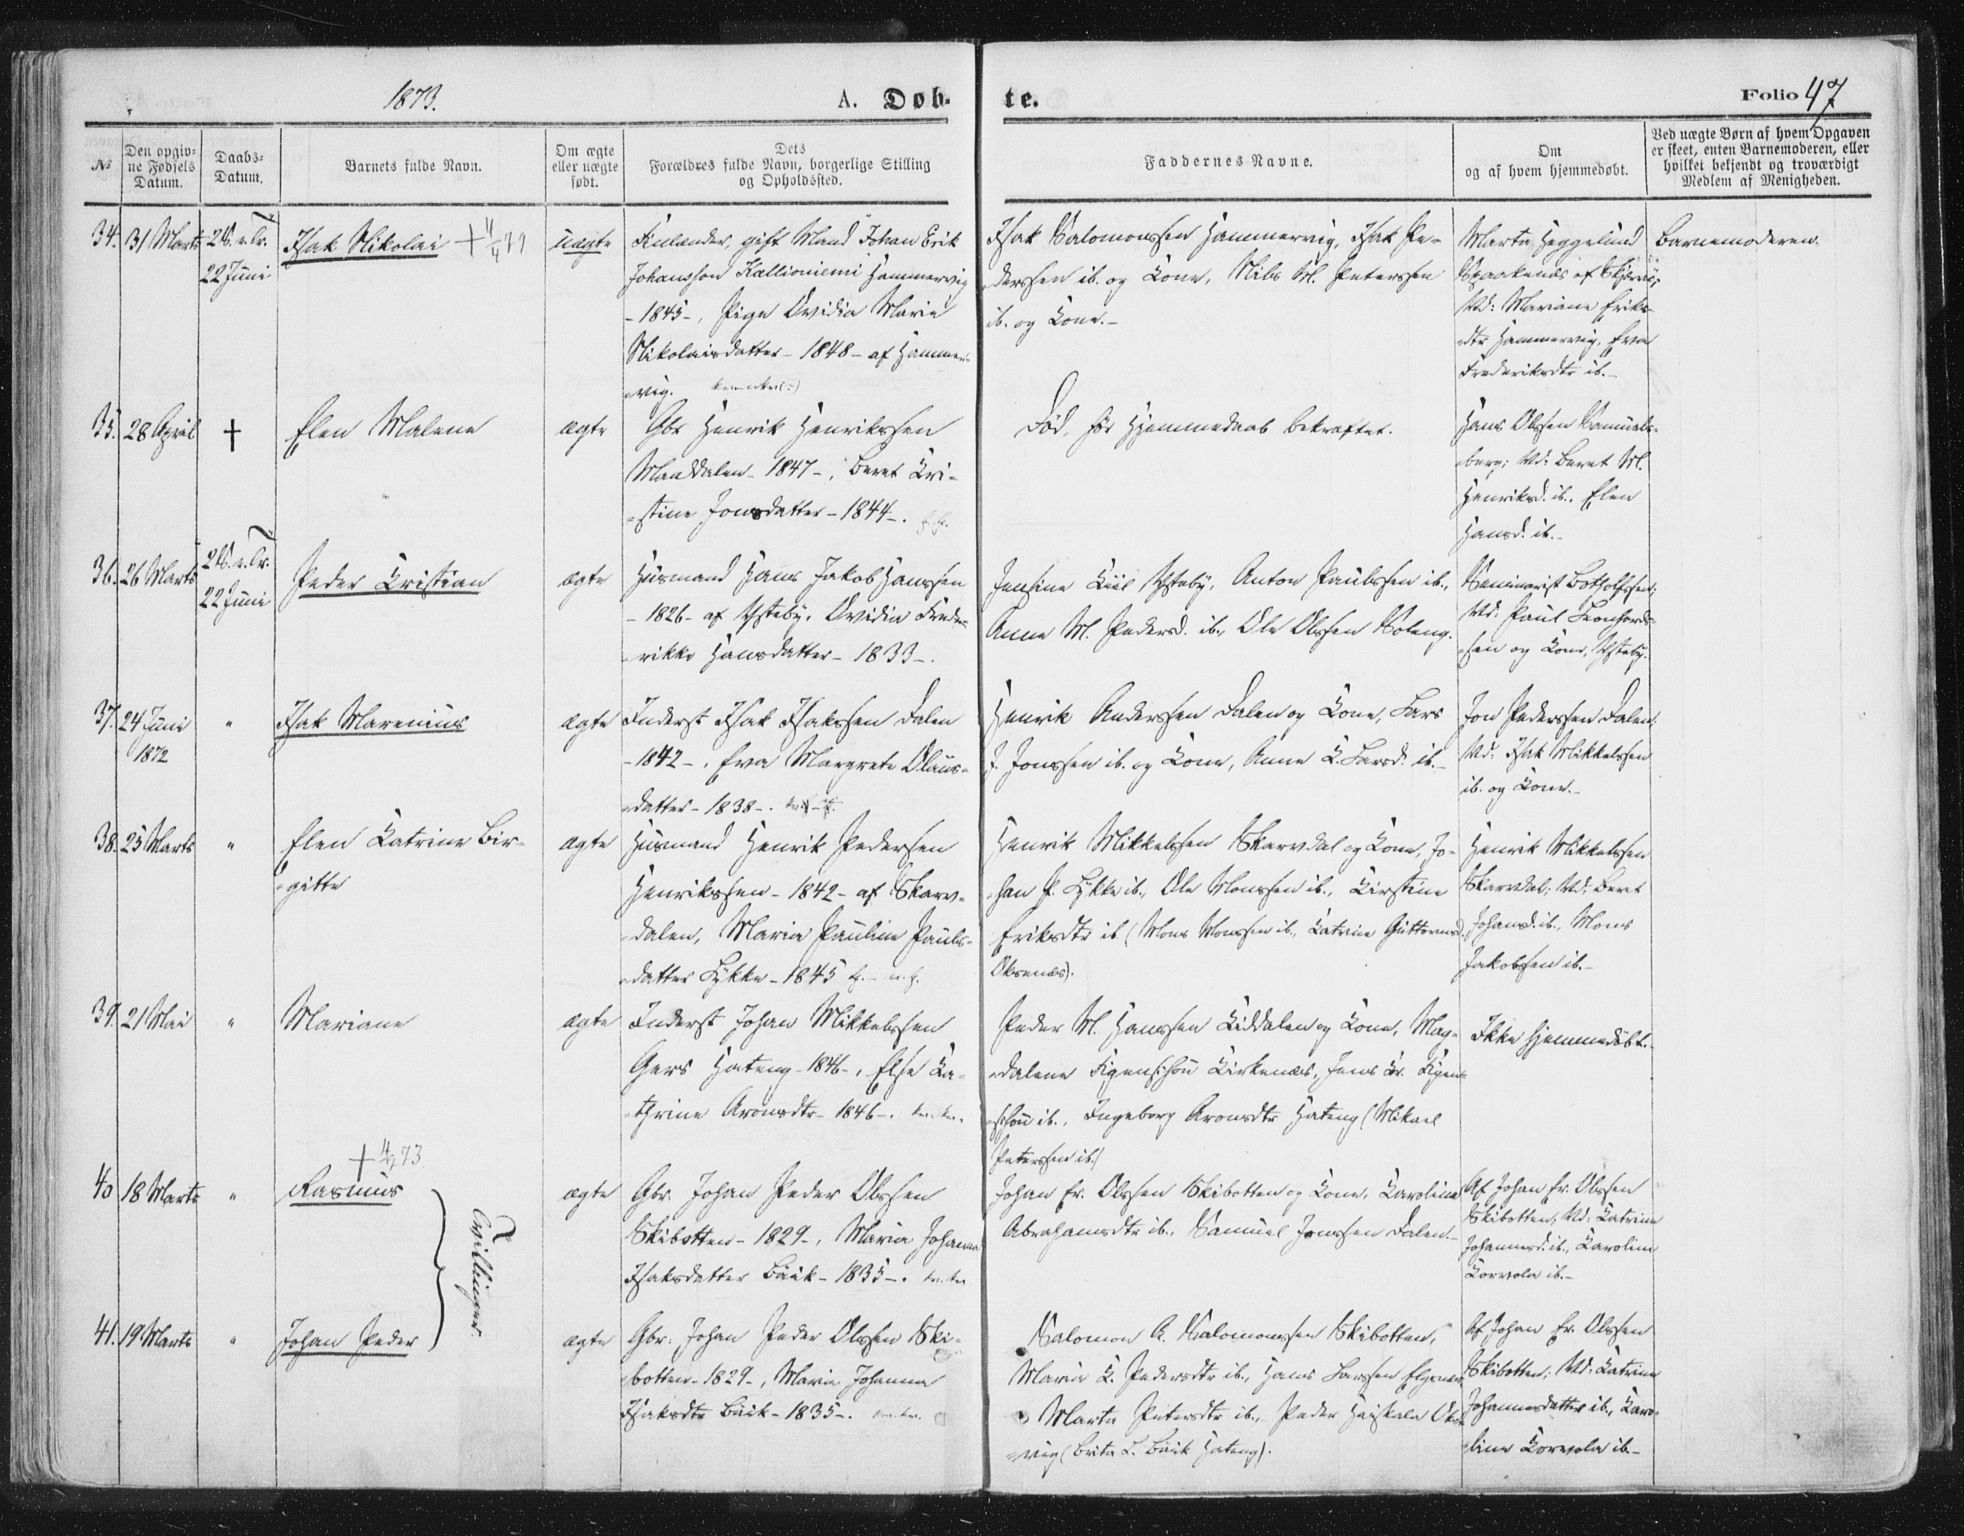 1873.
A. Døb-
te.
Folio 47
No
Den opgiv-
ne Fødsels
Datum.
Daabs-
Datum.
Barnets fulde Navn.
Om ægte
eller uægte
født.
Dets
Forældres fulde Navn, borgerlige Stilling
og Opholdssted.
Faddernes Navne.
Om
og af hvem hjemmedøbt.
Ved uægte Børn af hvem Opgaven
er skeet, enten Barnemoderen, eller
hvilket bekjendt og troværdigt
Medlem af Menigheden.
34. 31 Marts
2 S. e. Tr.
22 Juni
Isak Nikolai
uægte
Finlænder, gift Mand Johan Erik
Johansson Kallioniemi Hammervig
- 1845 -, Pige Ovidia Marie
Nikolaisdatter - 1848 - af Hammer-
vig.
Isak Salomonssen Hammervig, Isak Pe-
derssen ib. og Kone, Nils M. Peterssen
ib. og Kone.-
Marta Heggelund
Spaakenæs af Skjervø;
Vid: Mariane Eriks-
dtr Hammervig, Eva
Frederiksdtr ib.-
Barnemoderen.
35. 28 April
†
Elen Malene
ægte
Gbr Henrik Henrikssen
Manddalen - 1847 -, Beret Kri-
stine Jonsdatter - 1844 -.
Død, før Hjemmedaab bekræftet.
Hans Olssen Samuels-
berg; Vid: Beret M.
Henriksd. ib., Elen
Hansd. ib.-
36. 26 Marts
2 S. e. Tr.
22 Juni
Peder Kristian
ægte
Husmand Hans Jakob Hanssen
- 1826 - af Ysteby, Ovidia Frede-
rikke Hansdatter - 1833 -.
Jensine Kiil Ysteby, Anton Paulssen ib.,
Anne M. Pedersd. ib., Ole Olssen Soleng.
Seminarist Botholfssen;
Vid: Paul Leonhards-
sen og Kone, Ysteby.
37. 24 Juni
1872
"
Isak Marenius
ægte
Inderst Isak Isakssen Dalen
- 1842 -. Eva Margrete Olaus-
datter - 1838 -.
Henrik Anderssen Dalen og Kone, Lars
J. Jonssen ib. og Kone, Anne K. Larsd. ib.-
Jon Pederssen Dalen;
Vid: Isak Mikkelssen
ib. og Kone.-
38. 25 Marts
"
Elen Katrine Bir-
gitte
ægte
Husmand Henrik Pedersen
Henrikssen - 1842 - af Skarv-
dalen, Maria Pauline Pauls-
datter Lykke - 1845
Henrik Mikkelssen Skarvdal og Kone, Jo-
han P. Lykke ib., Ole Monssen ib., Kirstine
Eriksdtr ib (Mons Monssen ib., Katrine Guttormsd.
Oksenæs).
Henrik Mikkelssen
Skarvdal; Vid: Beret
Johansd. ib., Mons
Jakobssen ib.-
39. 21 Mai
"
Mariane
ægte
Inderst Johan Mikkelssen
Gers Hateng - 1846 -, Else Ka-
thrine Aronsdtr - 1846 -.
Peder M. Hanssen Kiddalen og Kone, Mag-
dalene Figenschou Kirkenæs, Jens Kr. Figen-
schou ib., Ingeborg Aronsdtr Hateng (Mikael
Peterssen ib.)
Ikke hjemmedøbt.-
40 18 Marts
"
Rasmus
Tvillinger.
ægte
Gbr. Johan Peder Olssen
Skibotten - 1829 -, Maria Johanna
Isaksdatter Bäck - 1835 -.
Johan Er. Olssen Skibotten og Kone, Karoline
Abrahamsdtr ib., Samuel Jonssen Dalen.-
Af Johan Er. Olssen
Skibotten; Vid: Katrine
Johannesd. ib., Karoline
Korvola ib.-
41. 19 Marts
"
Johan Peder
ægte
Gbr. Johan Peder Olssen Ski-
botten - 1829 -, Maria Johanna
Isaksdtr Bäck - 1835 -.
Salomon A. Salomonssen Skibotten,
Maria K. Pedersdtr ib., Hans Larssen
Marta Petersdtr ib., Peder Heiskala
vig (Brita L. Bäck Hateng).
Af Johan Er. Olssen
Skibotten; Vid: Katrine
Johannesdatter ib., Karo-
line Korvola ib.-